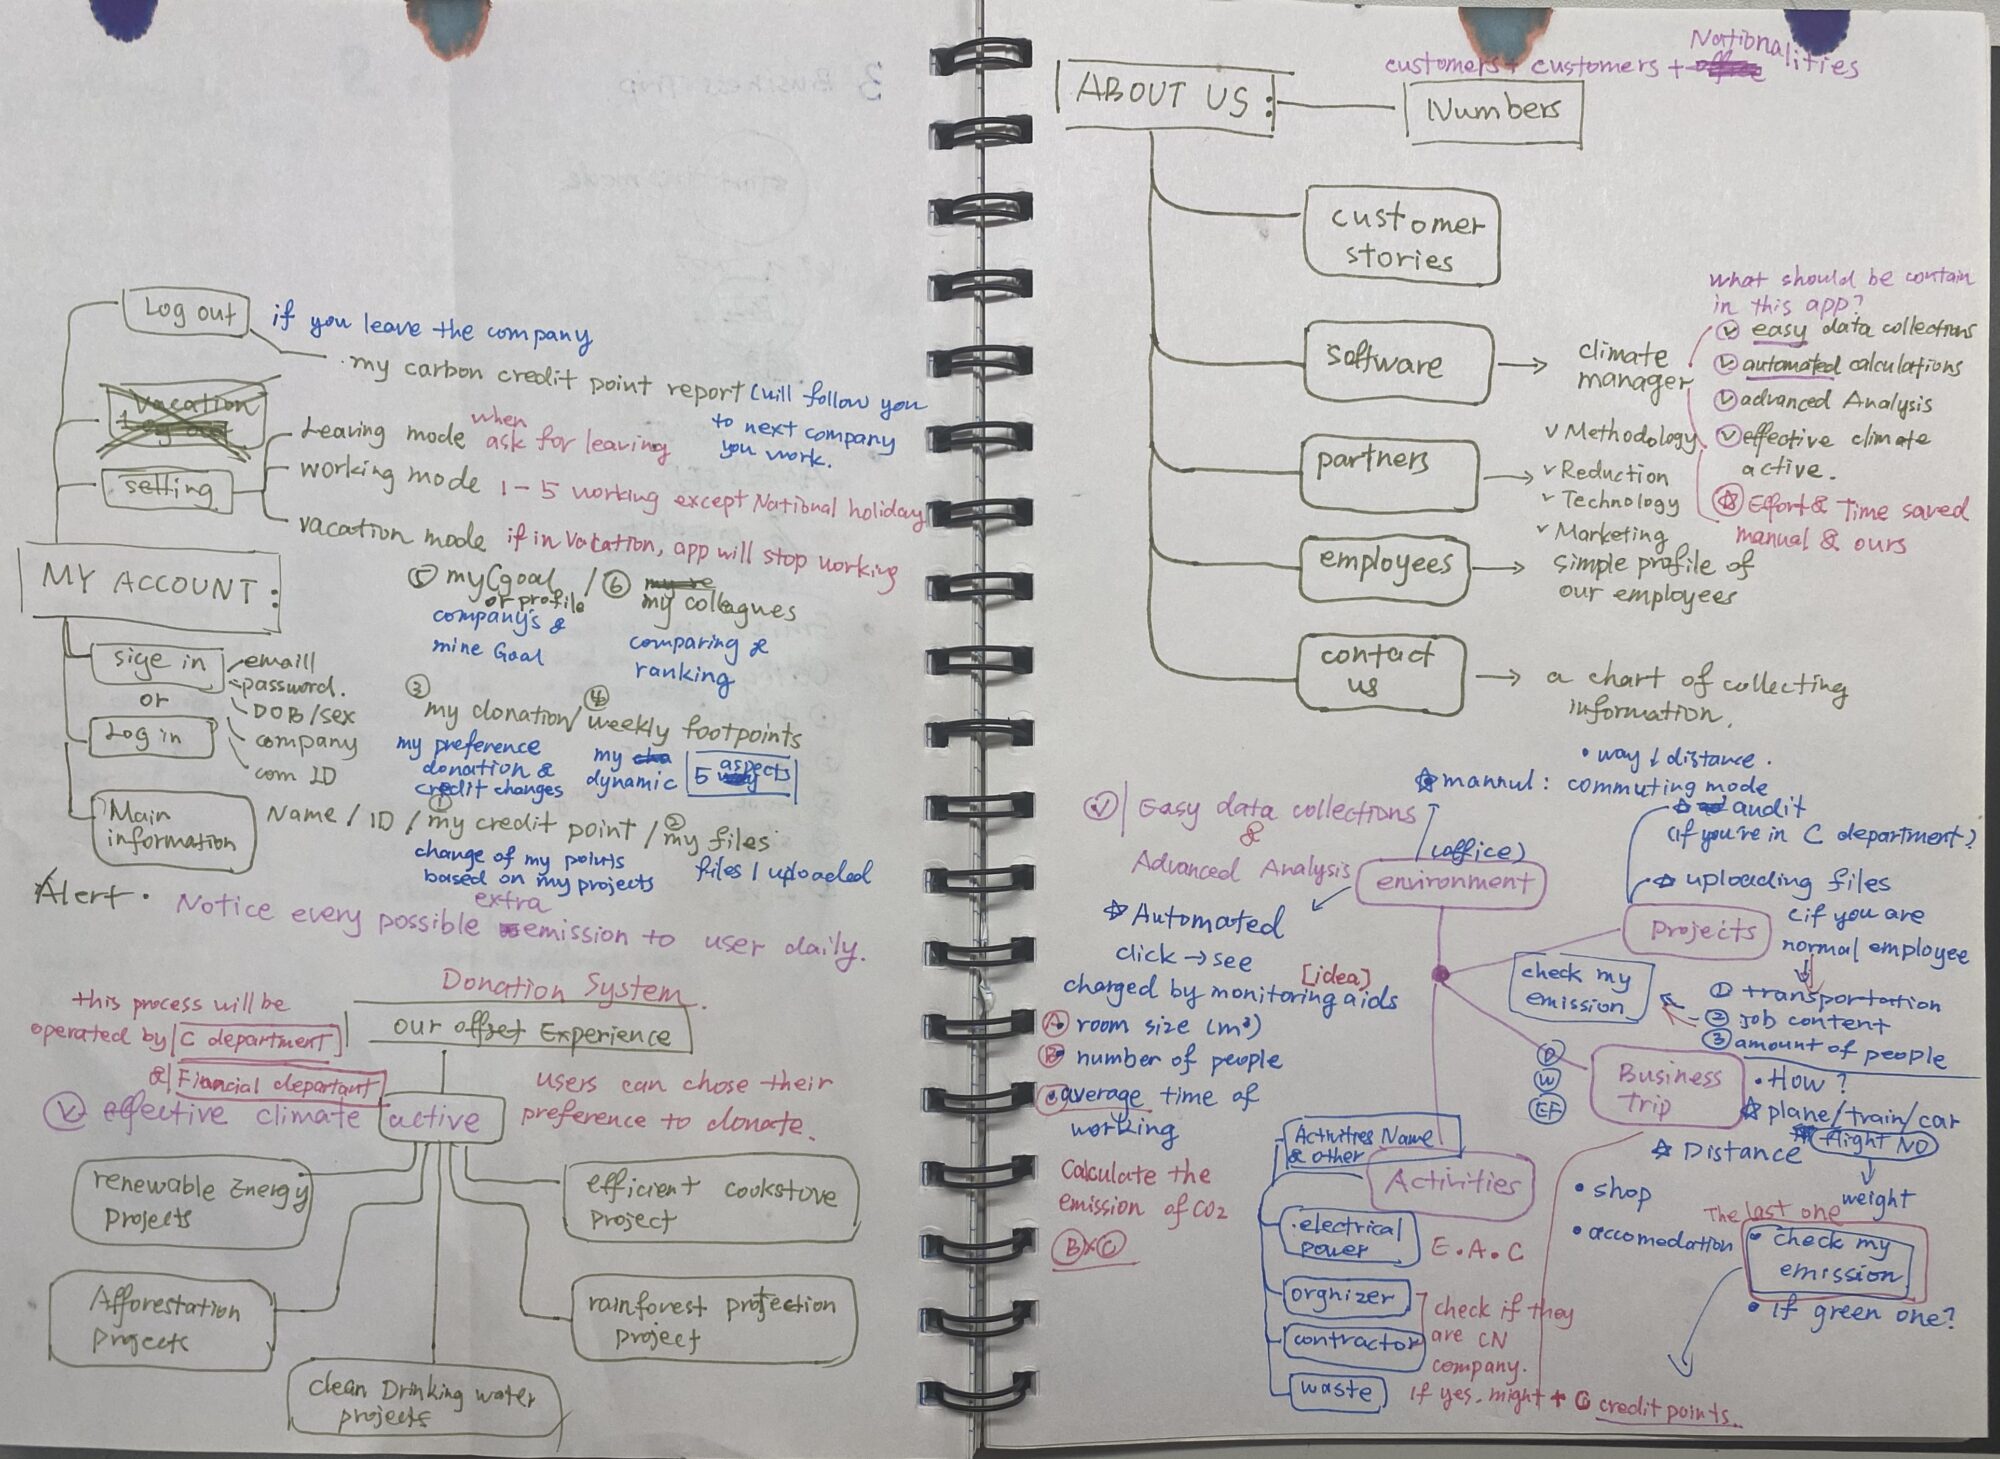 Log out
if you leave the company
my carbon credit point report (will follow you
to next company
you work.
vacation
Log out
setting
Leaving mode when ask for leaving
working mode 1-5 working except National holiday
vacation mode if in vacation, app will stop working
MY ACCOUNT:
⑤ my goal / ⑥ my re
or profile my colleagues
company's &
mine Goal
comparing &
ranking
sige in
or
Log in
emaill
password.
DOB/sex
company
com ID
③ my donation / ④ weekly footpoints
my preference
donation &
credit changes
my cha
dynamic
5 aspects
Main
information
Name / ID / ① my credit point / ② my files
change of my points
based on my projects
files I uploaded
Alert. Notice every possible extra emission to user daily.
Donation System.
our offset Experience
this process will be
operated by C department
& Financial departant
V effective climate active
users can chose their
preference to donate.
renewable Energy
projects
efficient cookstove
project
Afforestation
projects
rainforest protection
project
clean Drinking water
projects
ABOUT US:
customers + customers + office Nationalities
Numbers
customer
stories
software
climate
manager
what should be contain
in this app?
V easy data collections
V automated calculations
V advanced Analysis
V effective climate
active.
☆ Effort & Time saved
manual & ours
partners
v Methodology
v Reduction
v Technology
v Marketing
employees
simple profile of
our employees
contact
us
a chart of collecting
information.
V Easy data collections
&
Advanced Analysis
• way & distance.
☆ mannul: commuting mode
(office)
environment
☆ audit
(if you're in C department?
☆ uploading files
(if you are
normal employee
projects
☆ Automated
click → see
charged by monitoring aids
[idea]
A room size (m³)
B number of people
C average time of
working
Calculate the
emission of CO2
B×C
check my
emission
① transportation
② Job content
③ amount of people
D
W
EF
Business
trip
• How?
☆ plane/train/car
flight NO
weight
☆ Distance
• shop
• accomedation
The last one
• check my
emission
• if green one?
Activities Name
& other
Activities
electrical
power
E.A.C
orgnizer
contractor
waste
check if they
are CN
company.
if yes, might + C credit points.